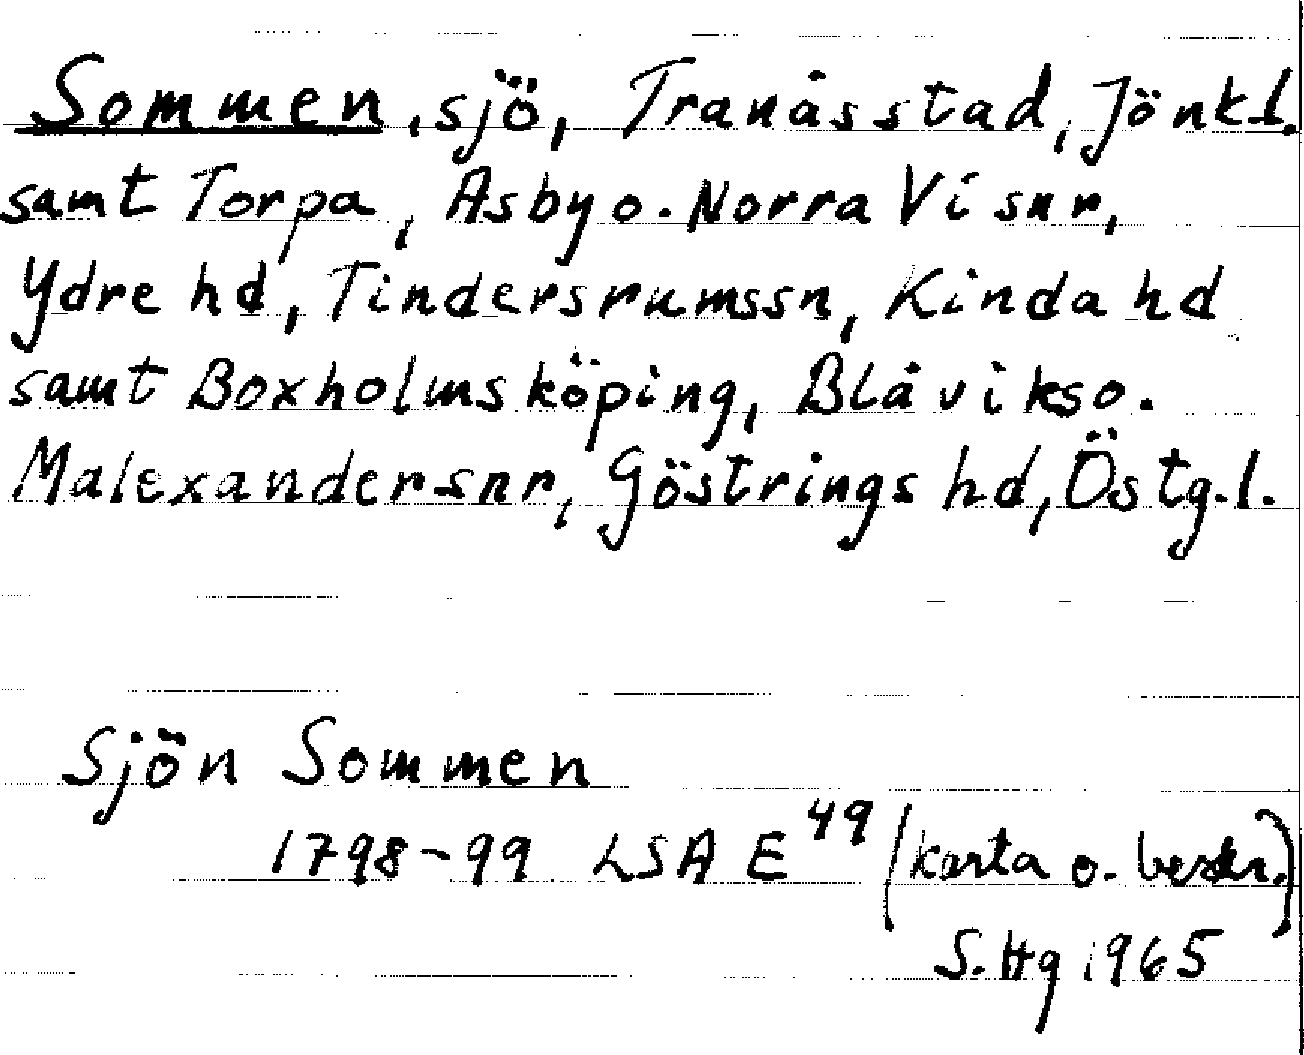 Sommen, sjö, Tranås stad, Jönk.l.
samt Torpa, Asby o. Norra Vi snr,
Ydre hd, Tindersrumssn, Kinda hd
samt Boxholms köping, Blåviks o.
Malexander snr, Göstrings hd, Östg.l.
Sjön Sommen
1798-99 LSA E 49 (karta o. beskr.)
S.Hg 1965